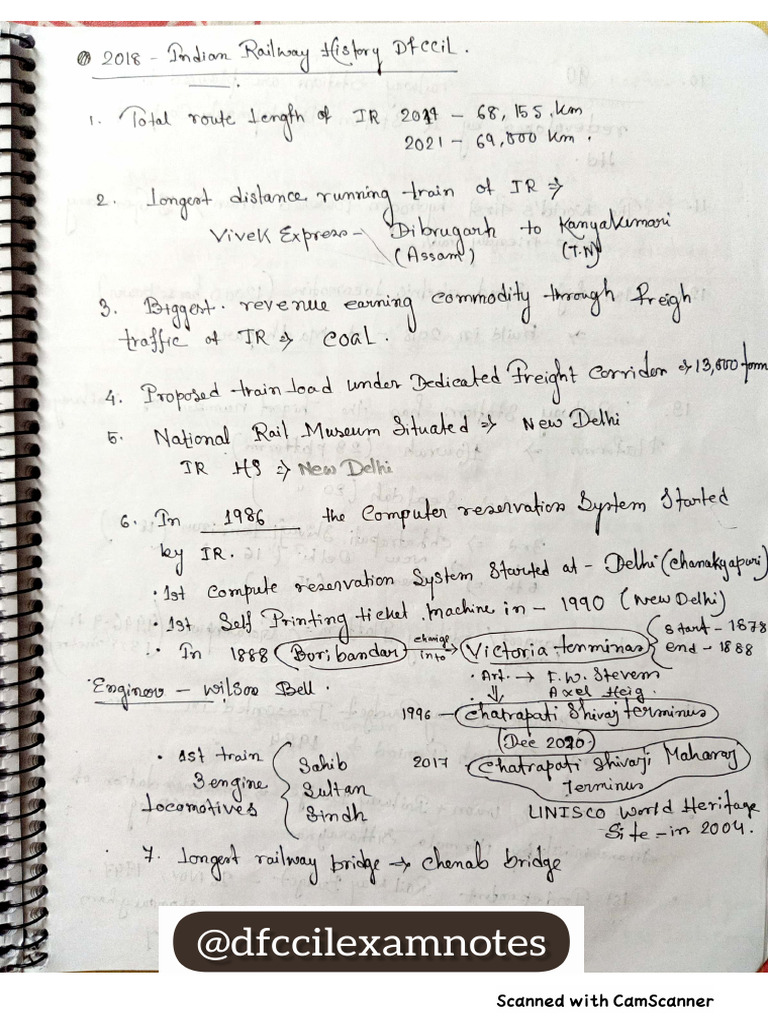 2018 - Indian Railway History DfCCiL.
1. Total route length of IR 2019 - 68,155 km
2021 - 69,800 km.
2. Longest distance running train of IR ⇒
Vivek Express - Dibrugarh to Kanyakumari
(Assam) (T.N)
3. Biggest revenue earning commodity through freigh
traffic of IR ⇒ coal.
4. Proposed train load under Dedicated Freight Corridor ⇒ 13,000
5. National Rail Museum Situated ⇒ New Delhi
IR HS ⇒ New Delhi
6. In 1986 the Computer reservation System Started
key IR.
• 1st Compute reservation System Started at - Delhi (Chanakyapuri)
• 1st Self Printing ticket machine in - 1990 (New Delhi)
• In 1888 Boribandar change into → Victoria terminas start - 1878
end - 1888
Engineer - Wilson Bell. • Art. → F.W. Stevens
• ⇓ Axel Heig.
1996 - Chatrapati Shivaj terminus
(Dec 2020)
• 1st train Sahib 2017 Chatrapati Shivaji Maharaj
3 engine Sultan Terminus
locomotives Sindh UNISCO World Heritage
Site - in 2004.
7. Longest railway bridge → chenab bridge
@dfccilexamnotes
Scanned with CamScanner